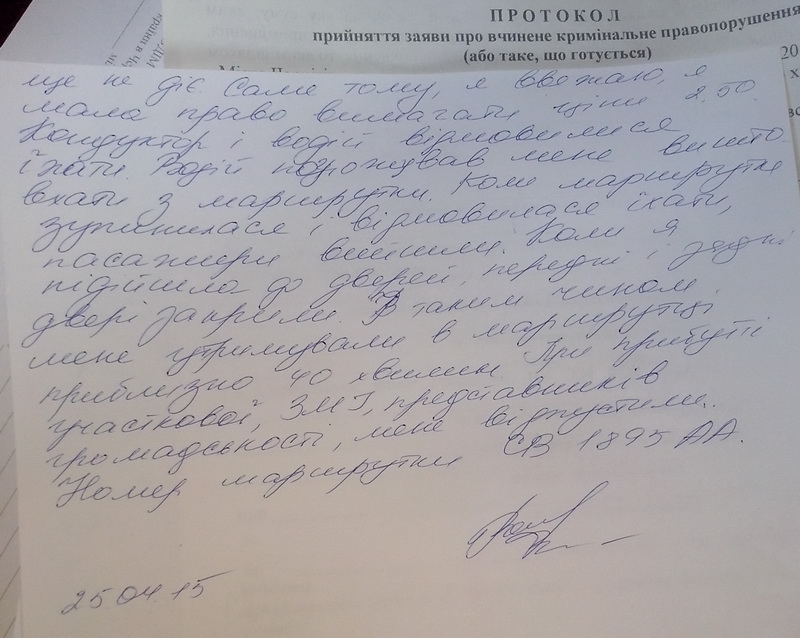 ПРОТОКОЛ
прийняття заяви про вчинене кримінальне правопорушення
(або таке, що готується)
20
ще не діє. Саме тому, я вважаю, я
мала право вимагати ціни 2.50.
Кондуктор і водій відмовилися
їхати. Водій погрожував мене вишто-
вхати з маршрутки. Коли маршрутка
зупинилася і відмовилася їхати,
пасажири вийшли. Коли я
підійшла до дверей, передні і задні
двері закрили. В таким чином
мене утримували в маршрутці
приблизно 40 хвилин. При прибутті
участкової, ЗМІ, представників
громадськості, мене відпустили.
Номер маршрутки СВ 1895 АА.
25.04.15